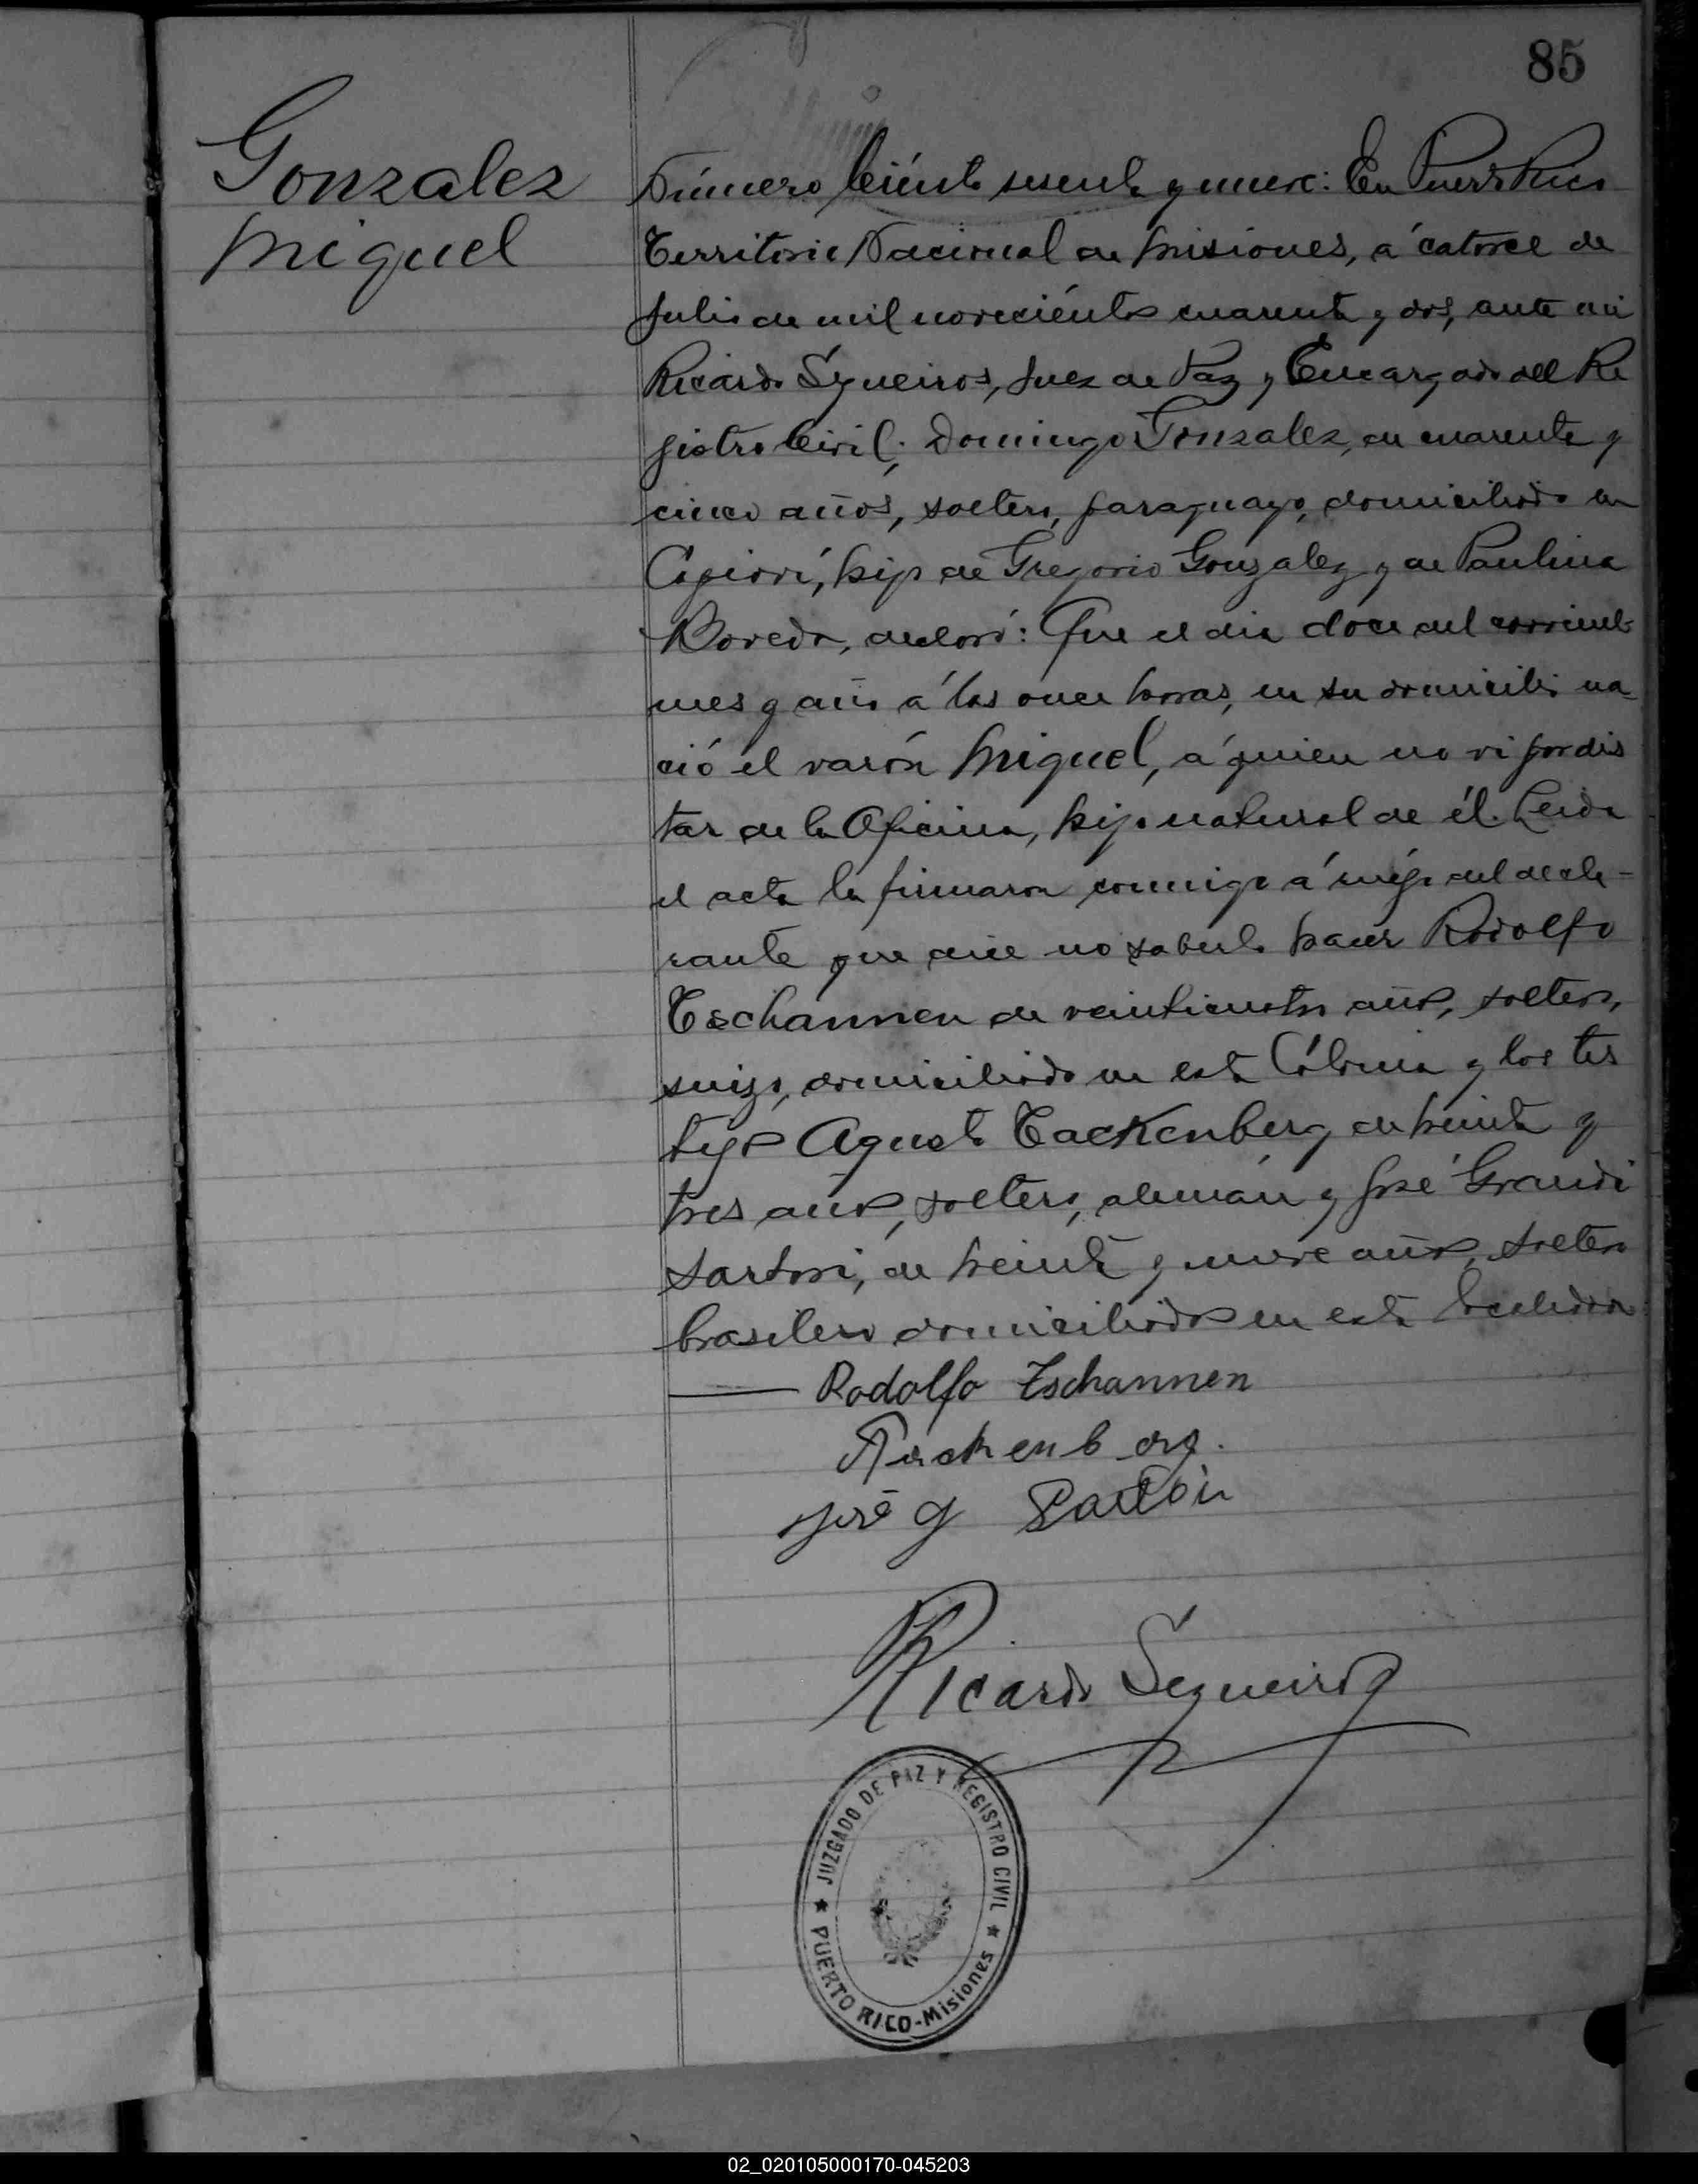 85
Gonzalez
Miguel
Número Ciénto sesenta y nueve: En Puerto Rico
Territorio Nacional de Misiones, á catorce de
Julio de mil noveciéntos cuarenta y dos, ante mi
Ricardo Sequeiros, Juez de Paz y Encargado del Re
gistro Civil; Domingo Gonzalez, de cuarenta y
cinco años, soltero, paraguayo, domiciliado en
hijo de Gregorio Gonzalez y de Paulina
declaró: Que el dia doce del corriente
mes y año á las once horas, en su domicilio na
ció el varón Miguel, á quien no vi por dis
tar de la Oficina, hijo natural de él. Leida
el acta la firmaron conmigo á ruégo del decla-
rante que dice no saberlo hacer Rodolfo
Tschannen de veinticuatro años, soltero,
suizo, domiciliado en esta Colonia y los tes
tigos Agusto Tackenberg de treinta y
tres años, soltero, alemán y José Grandi
Sartori, de treinta y nueve años, soltero
brasilero domiciliados en esta localidad
Rodolfo Tschannen
Tackenberg.
José G Sartori
Ricardo Sequeiros
JUZGADO DE PAZ Y REGISTRO CIVIL
★ PUERTO RICO-Misiones ★
02_020105000170-045203